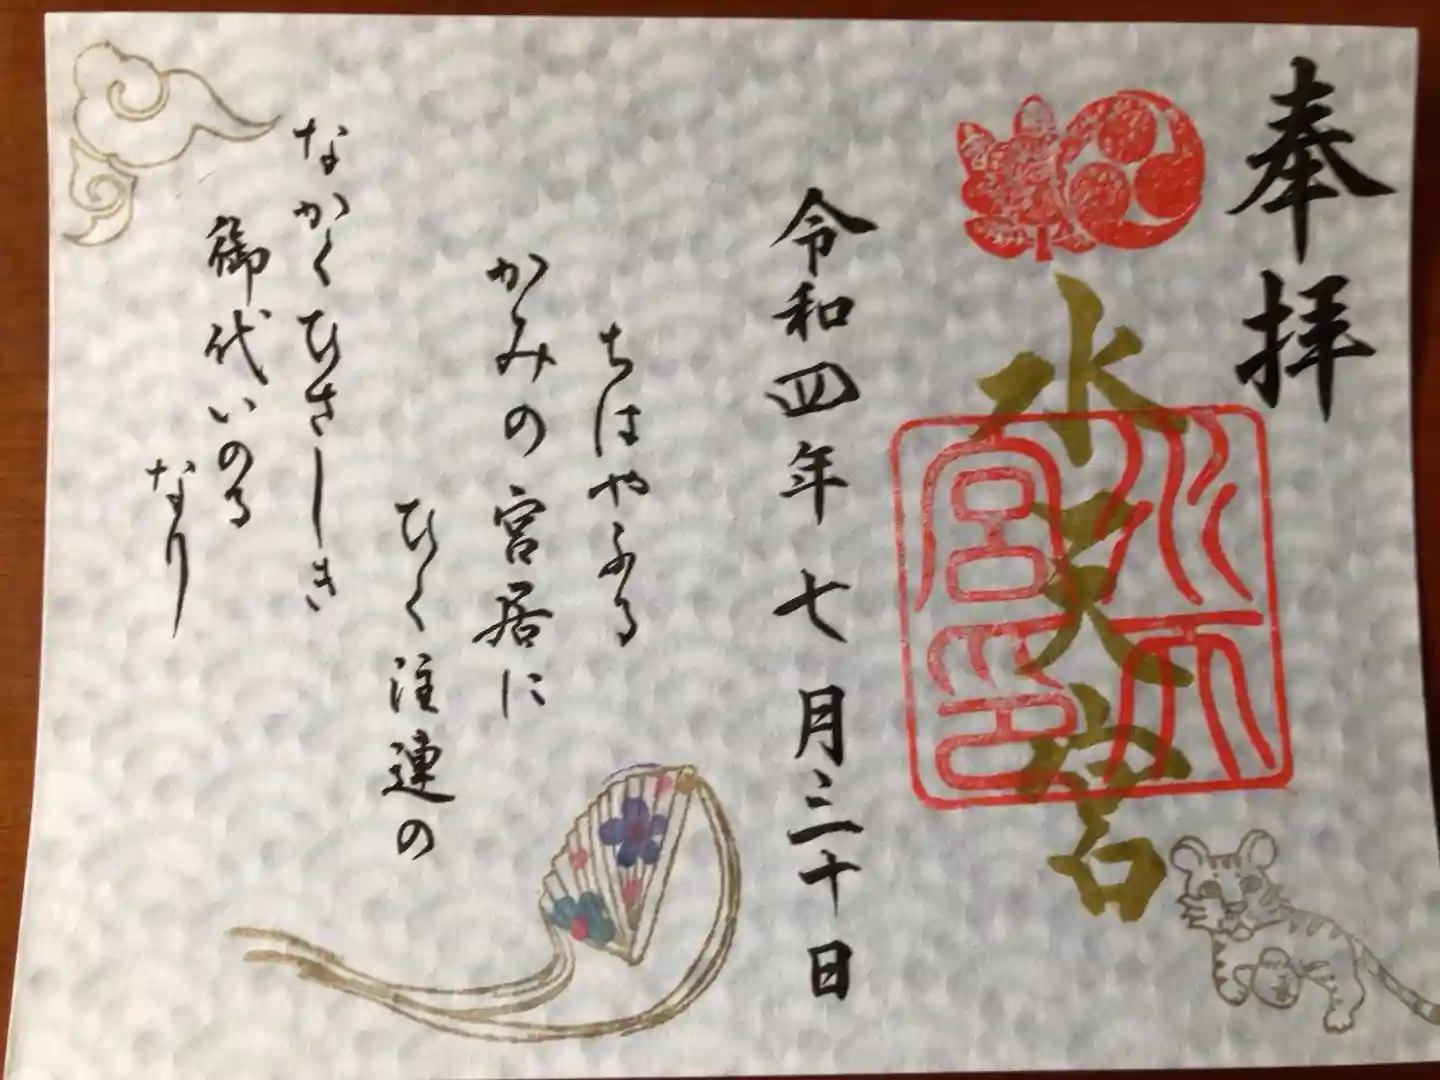 奉拝
水天宮
水天宮印
令和四年七月三十日
ちはやふる
かみの宮居に
ひく注連の
なかくひさしき
御代いのる
なり